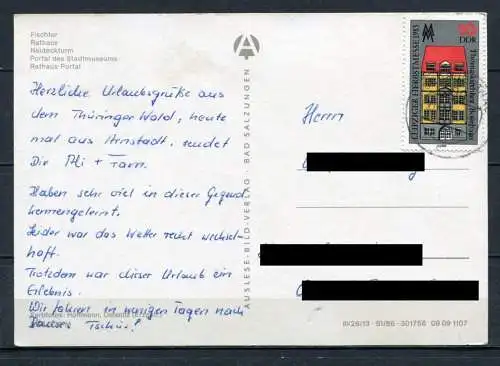 Fischtor
Rathaus
Neideckturm
Portal des Stadtmuseums
Rathaus Portal
Herzliche Urlaubsgrüße aus
dem Thüringer Wald, heute
mal aus Arnstadt, sendet
Dir + Fam.
Haben sehr viel in dieser Gegend
kennengelernt.
Leider war das Wetter recht wechsel-
haft.
Trotzdem war dieser Urlaub ein
Erlebnis.
Wir fahren in wenigen Tagen nach
Hause. Tschüs!
Hoffmann,
AUSLESE-BILD-VERLAG · BAD SALZUNGEN
A
Herrn
LEIPZIGER HERBSTMESSE 1985
MM
10
DDR
III/26/13 · 51/86 · 301756 09 09 1107